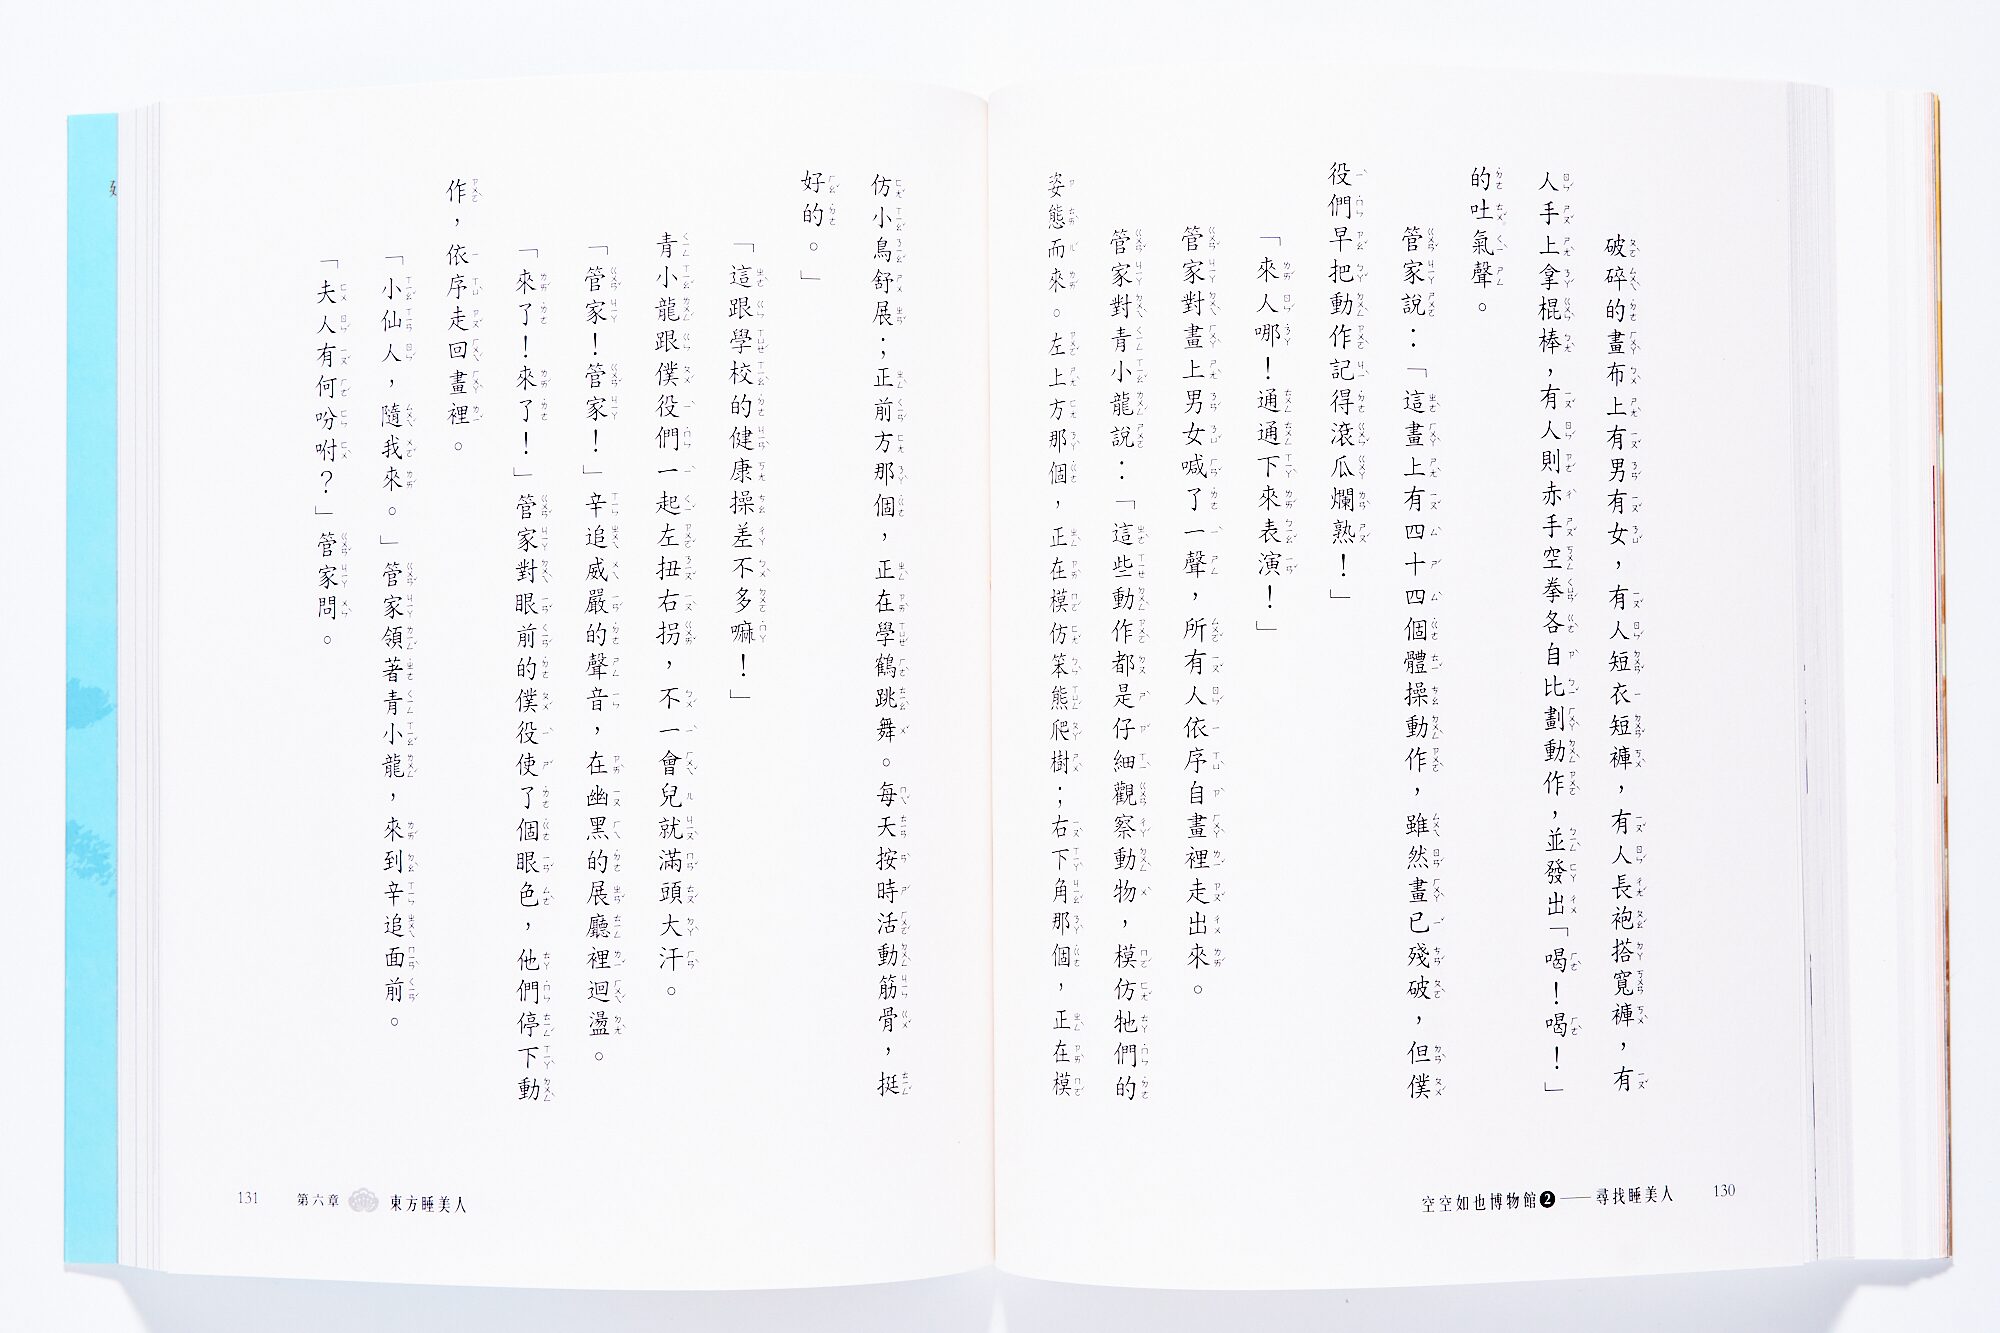 破碎的畫布上有男有女，有人短衣短褲，有人長袍搭寬褲，有
人手上拿棍棒，有人則赤手空拳各自比劃動作，並發出「喝！喝！」
的吐氣聲。
管家說：「這畫上有四十四個體操動作，雖然畫已殘破，但僕
役們早把動作記得滾瓜爛熟！」
「來人哪！通通下來表演！」
管家對畫上男女喊了一聲，所有人依序自畫裡走出來。
管家對青小龍說：「這些動作都是仔細觀察動物，模仿牠們的
姿態而來。左上方那個，正在模仿笨熊爬樹；右下角那個，正在模
空空如也博物館❷——尋找睡美人 130
仿小鳥舒展；正前方那個，正在學鶴跳舞。每天按時活動筋骨，挺
好的。」
「這跟學校的健康操差不多嘛！」
青小龍跟僕役們一起左扭右拐，不一會兒就滿頭大汗。
「管家！管家！」辛追威嚴的聲音，在幽黑的展廳裡迴盪。
「來了！來了！」管家對眼前的僕役使了個眼色，他們停下動
作，依序走回畫裡。
「小仙人，隨我來。」管家領著青小龍，來到辛追面前。
「夫人有何吩咐？」管家問。
131 第六章 東方睡美人